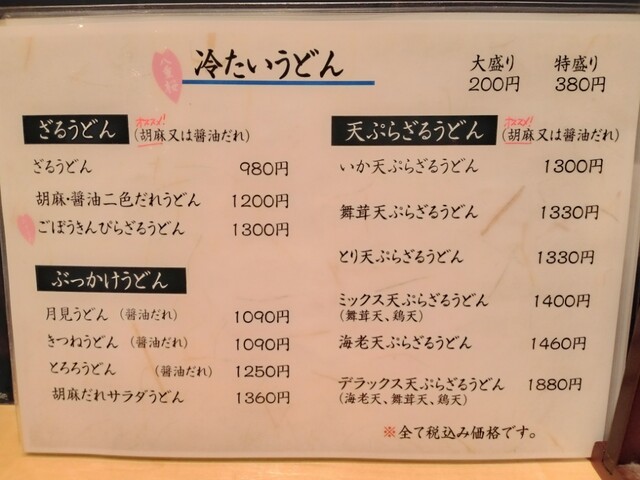 冷たいうどん
大盛り 特盛り
200円 380円
ざるうどん
オススメ!
(胡麻又は醤油だれ)
ざるうどん 980円
胡麻・醤油二色だれうどん 1200円
ごぼうきんぴらざるうどん 1300円
ぶっかけうどん
月見うどん (醤油だれ) 1090円
きつねうどん (醤油だれ) 1090円
とろろうどん (醤油だれ) 1250円
胡麻だれサラダうどん 1360円
天ぷらざるうどん
オススメ!
(胡麻又は醤油だれ)
いか天ぷらざるうどん 1300円
舞茸天ぷらざるうどん 1330円
とり天ぷらざるうどん 1330円
ミックス天ぷらざるうどん 1400円
(舞茸天、鶏天)
海老天ぷらざるうどん 1460円
デラックス天ぷらざるうどん 1880円
(海老天、舞茸天、鶏天)
※全て税込み価格です。